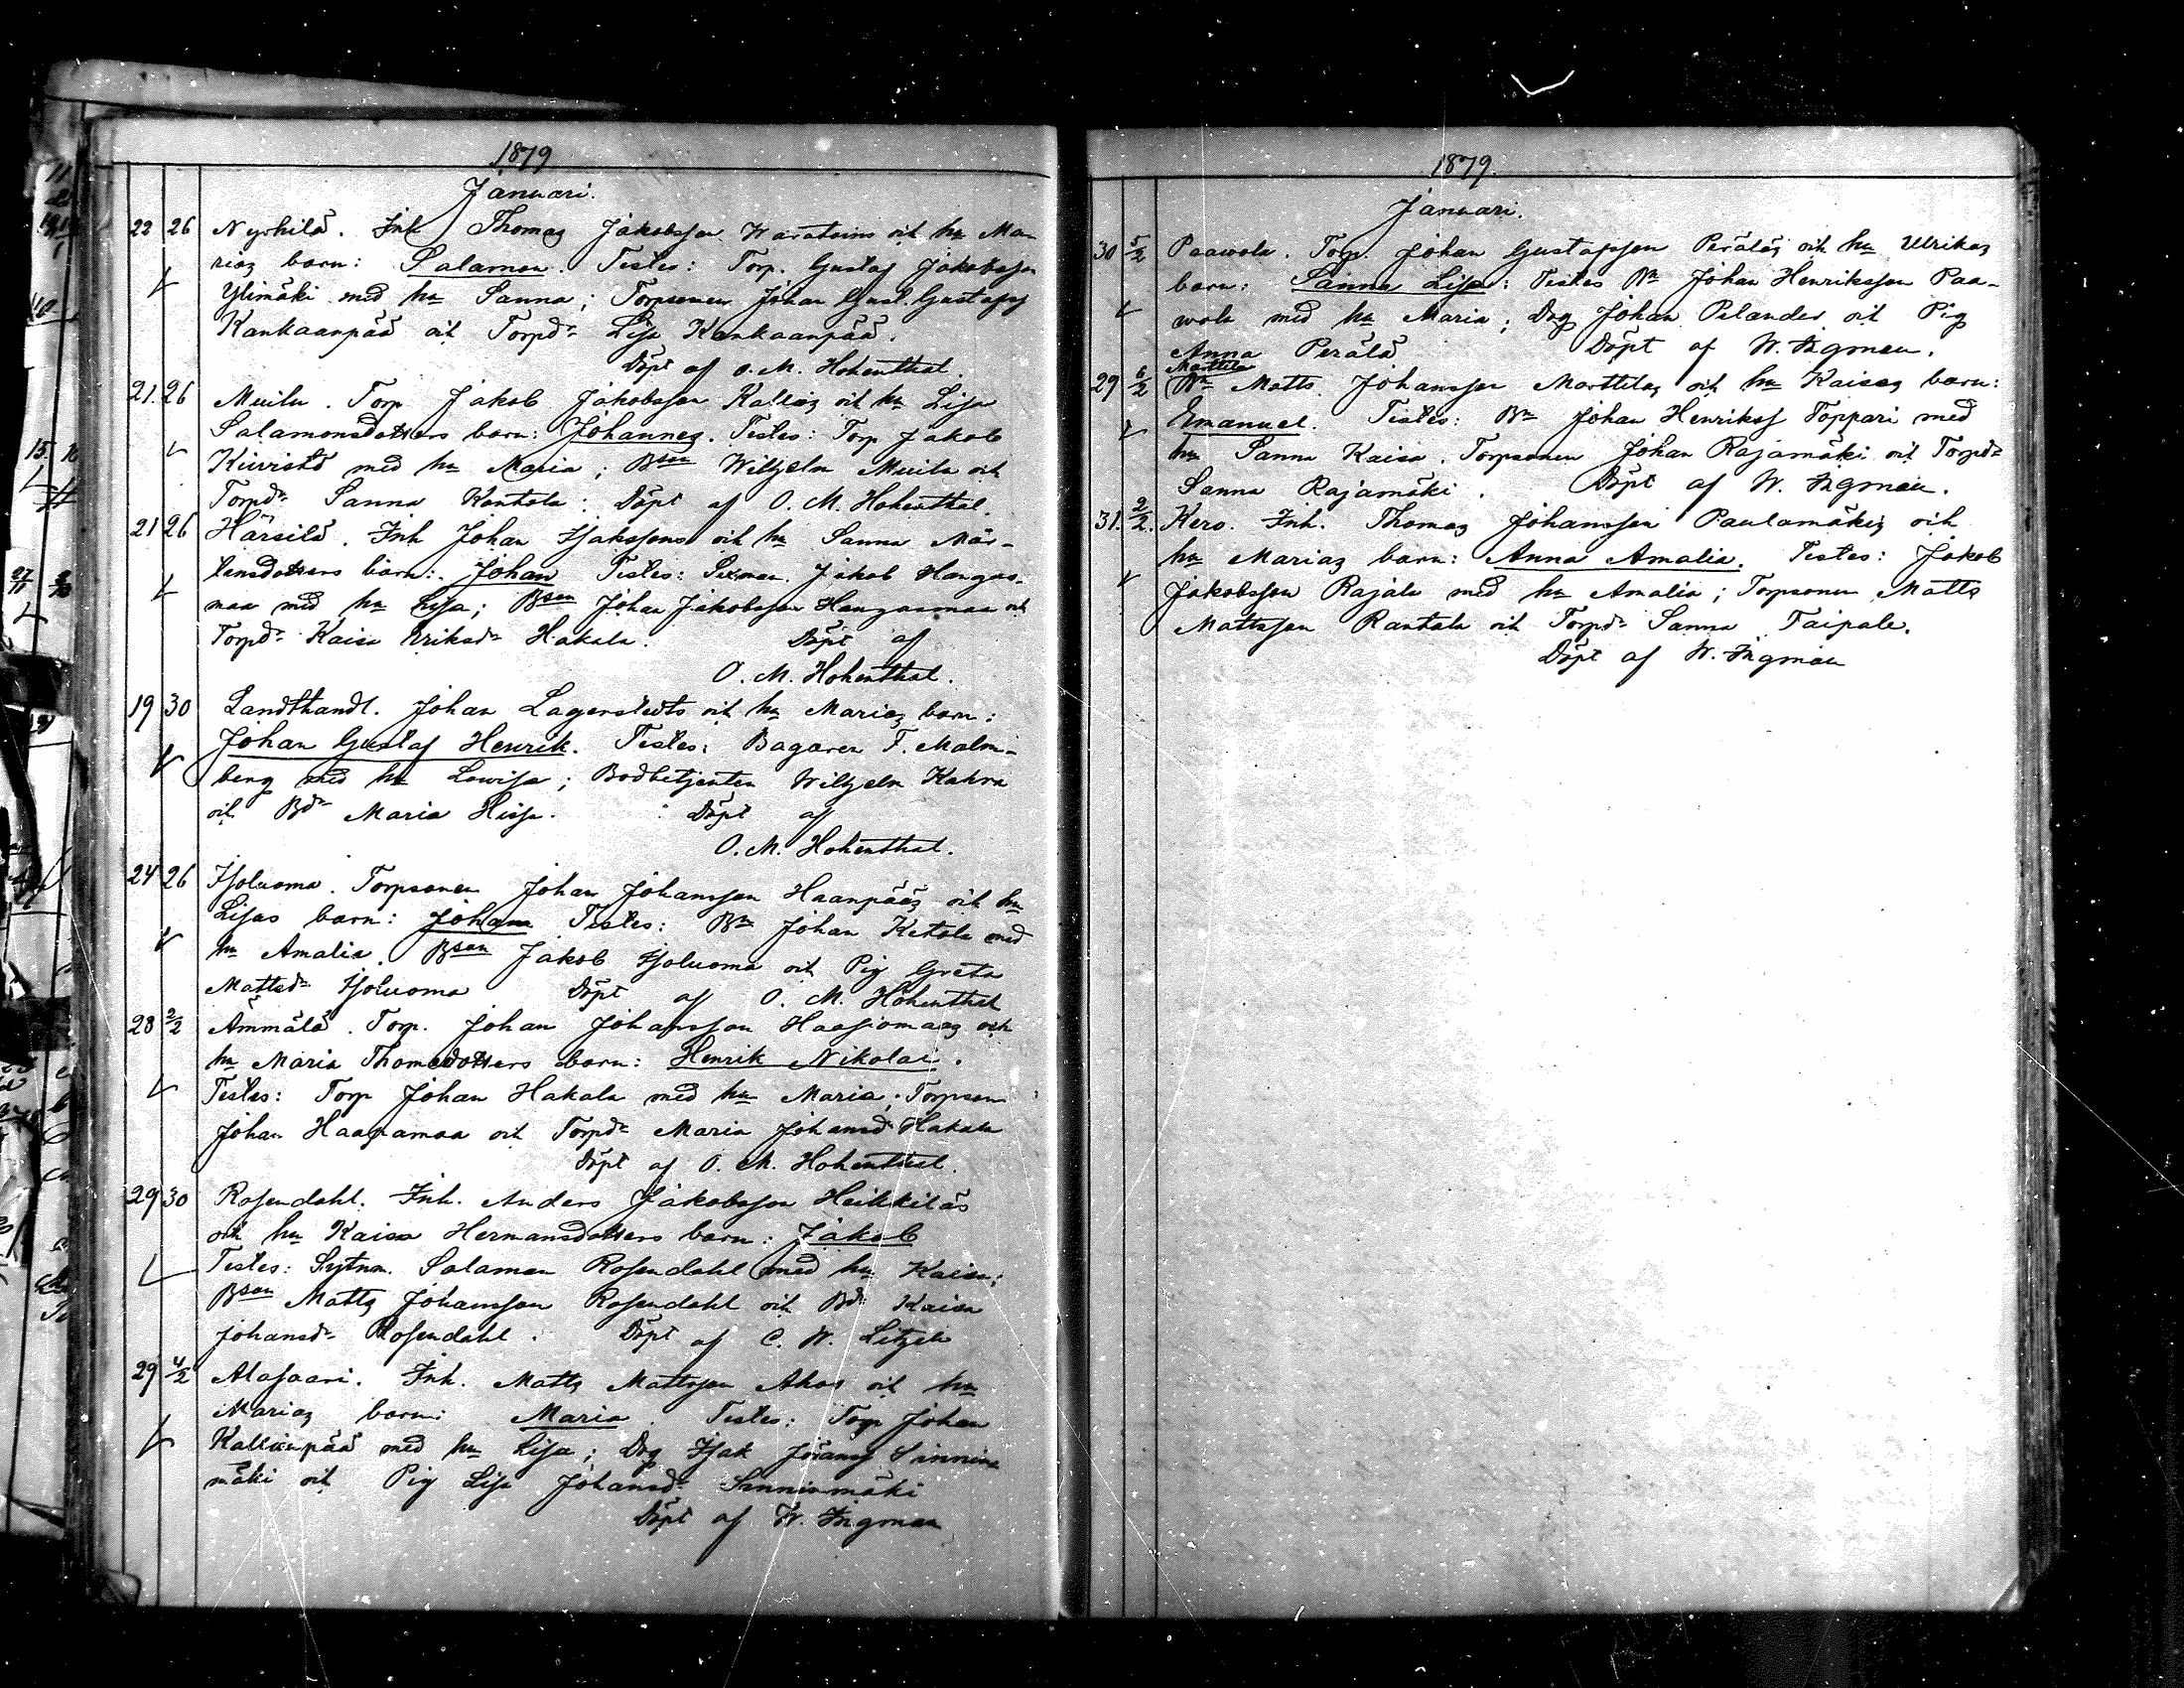 1879
Januari.
22 26 Nyrhilä. Inh Thomas Jakobsson Waratoins och hu Ma-
rias barn: Salamon. Testes: Torp. Gustaf Jakobsson
Ylimäki med hu Sanna; Torpsonen Johan Gust. Gustafss
Kankaanpää och Torpdr Lisa Kankaanpää.
Döpt af O. M. Hohenthal.
21. 26 Muilu. Torp Jakob Jakobsson Kallios och hu Lisa
Salamonsdotters barn: Johannes. Testes: Torp Jakob
Kiviistö med hu Maria; Bson Wilhjelm Muilu och
Torpdr Sanna Kantola. Döpt af O. M. Hohenthal.
21 26 Härsilä. Inh Johan Isakssons och hu Sanna Mår-
tensdotters barn: Johan Testes: Jakob Hangas-
maa med hu Lisa; Bson Johan Jakobsson Hangasmaa och
Torpdr Kaisa Eriksdr Hakala. Döpt af
O. M. Hohenthal.
19 30 Landthandl. Johan Lagerstedts och hu Marias barn:
Johan Gustaf Henrik. Testes: Bagaren F. Malm-
berg med hu Lowisa; Bodbetjenten Wilhjelm Kahra
och Bdr Maria Hissa. Döpt af
O. M. Hohenthal.
24 26 Isoluoma. Torpsonen Johan Johansson Haanpääs och hu
Lisas barn: Johan Testes: Bn Johan Ketola med
hu Amalia. Bson Jakob Isoluoma och Pig Greta
Mattsdr Isoluoma Döpt af O. M. Hohenthal
28 2/2 Ämmälä. Torp. Johan Johansson Haapomaas och
hu Maria Thomedotters barn: Henrik Nikolai.
Testes: Torp Johan Hakala med hu Maria; Torpson
Johan Haapamaa och Torpdr Maria Johansdr Hakala
Döpt af O. M. Hohenthal.
29 30 Rosendahl. Inh. Anders Jakobsson Heikkiläs
och hu Kaisa Hermansdotters barn: Jakob
Testes: Sytnm. Salamon Rosendahl med hu Kaisa;
Bson Matts Johansson Rosendahl och Bdr Kaisa
Johansdr Rosendahl. Döpt af C. W. Litzén
29 4/2 Alasaari. Inh. Matts Mattsson Ahos och hu
Marias barn: Maria. Testes: Torp Johan
Kallionpää med hu Lisa; Drg Isak Jörans
mäki och Pig Lisa Johansdr Sinnismäki
Döpt af W. Ingman
1879.
Januari.
30 5/2 Paawola. Torp. Johan Gustafsson Peräläs och hu Ulrikas
barn: Sanna Lisa: Testes Bn Johan Henriksson Paa-
wola med hu Maria; Drg Johan Pelander och Pig
Anna Perälä Döpt af W. Ingman.
Marttila
29 6/2 Bn Matts Johansson Marttilas och hu Kaisas barn:
Emanuel. Testes: Bn Johan Henrikss Toppari med
hu Sanna Kaisa. Torpsonen Johan Rajamäki och Torpdr
Sanna Rajamäki. Döpt af W. Ingman.
31. 2/2. Kero. Inh. Thomas Johansson Paulamäkis och
hu Marias barn: Anna Amalia. Testes: Jakob
Jakobsson Rajala med hu Amalia; Torpsonen Matts
Mattsson Rantala och Torpdr Sanna Taipale.
Döpt af W. Ingman